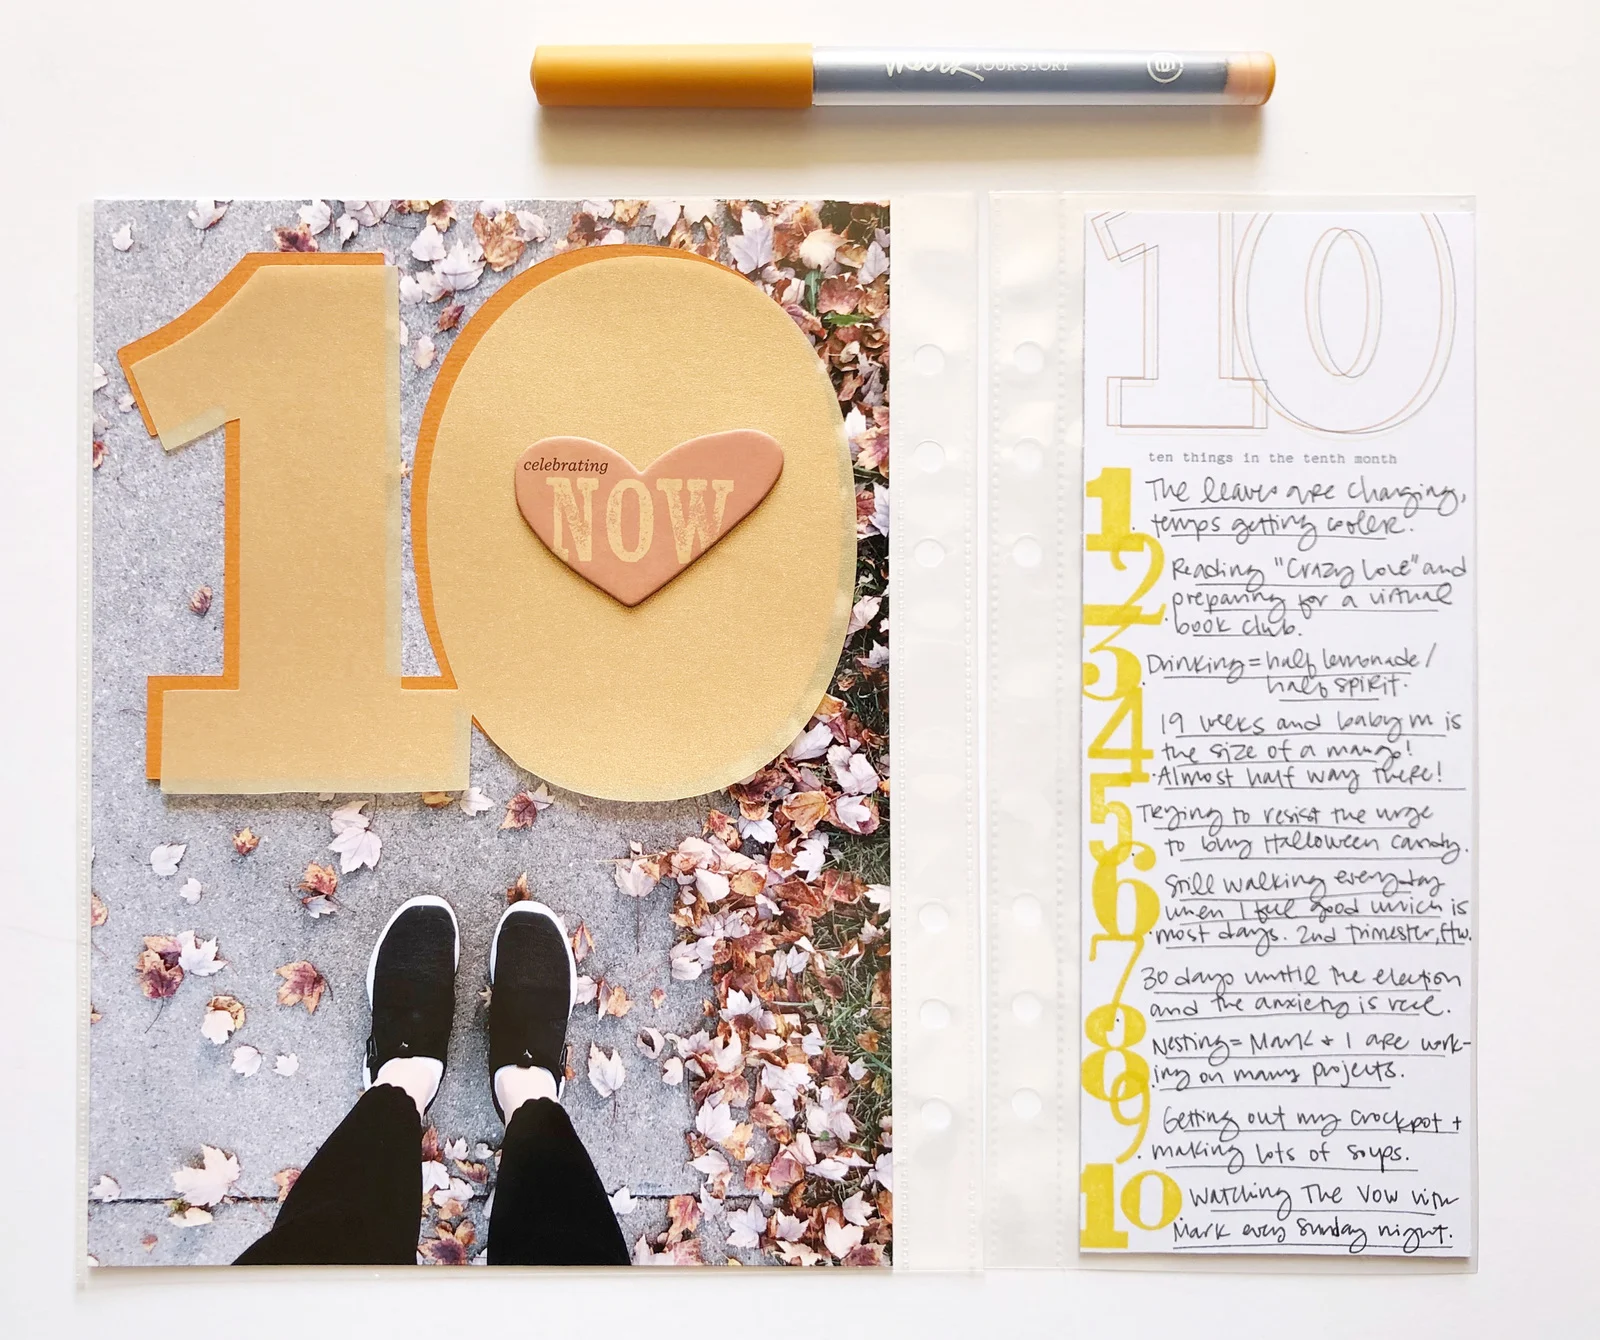 Mark YOUR STORY
10
celebrating
NOW
10
ten things in the tenth month
1. The leaves are changing,
temps getting cooler.
2. Reading "Crazy Love" and
preparing for a virtual
book club.
3. Drinking = half lemonade/
half spirit.
4. 19 weeks and baby m is
the size of a mango!
Almost half way there!
5. Trying to resist the urge
to buy Halloween candy.
6. Still walking everyday
when I feel good which is
most days. 2nd trimester, ftw.
7. 30 days until the election
and the anxiety is real.
8. Nesting = Mark + I are work-
ing on many projects.
9. Getting out my crockpot +
making lots of soups.
10 Watching The Vow with
Mark every Sunday night.